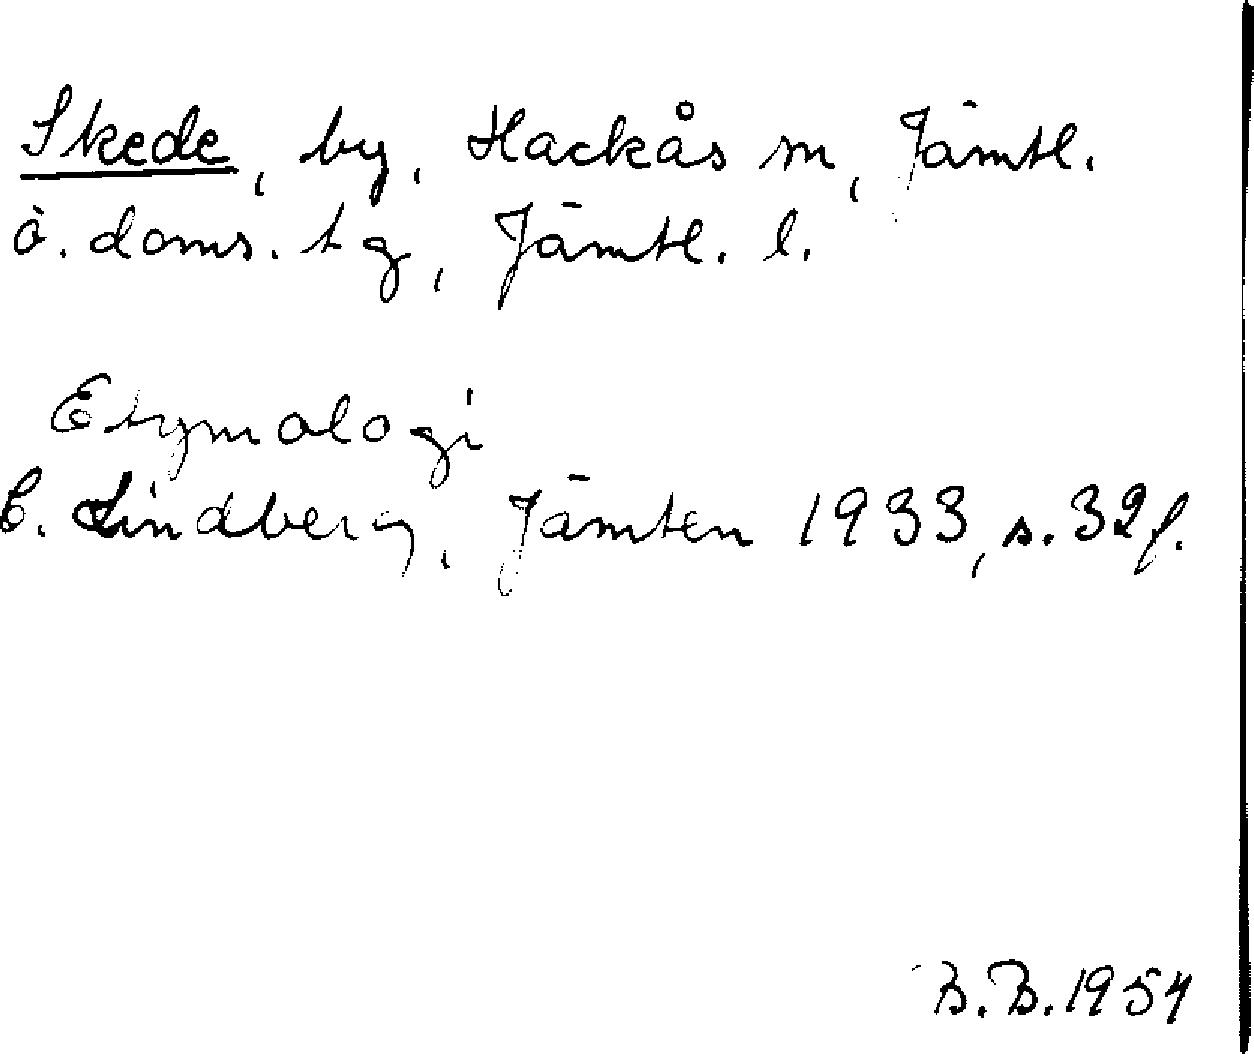 Skede, by, Hackås sn, Jämtl.
ö. doms. tg, Jämtl. l.
Etymologi
C. Lindberg, Jämten 1933, s. 32f.
B.B. 1954